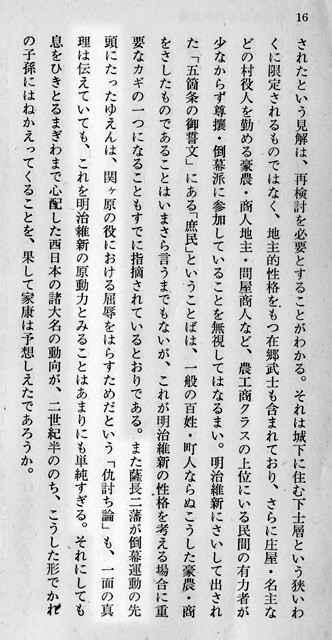 16
されたという見解は、再検討を必要とすることがわかる。それは城下に住む下士層という狭いわ
くに限定されるものではなく、地主的性格をもつ在郷武士も含まれており、さらに庄屋・名主な
どの村役人を勤める豪農・商人地主・問屋商人など、農工商クラスの上位にいる民間の有力者が
少なからず尊攘・倒幕派に参加していることを無視してはなるまい。明治維新にさいして出され
た「五箇条の御誓文」にある「庶民」ということばは、一般の百姓・町人ならぬこうした豪農・商
をさしたものであることはいまさら言うまでもないが、これが明治維新の性格を考える場合に重
要なカギの一つになることもすでに指摘されているとおりである。また薩長二藩が倒幕運動の先
頭にたったゆえんは、関ヶ原の役における屈辱をはらすためだという「仇討ち論」も、一面の真
理は伝えていても、これを明治維新の原動力とみることはあまりにも単純すぎる。それにしても
息をひきとるまぎわまで心配した西日本の諸大名の動向が、二世紀半ののち、こうした形でかれ
の子孫にはねかえってくることを、果して家康は予想しえたであろうか。